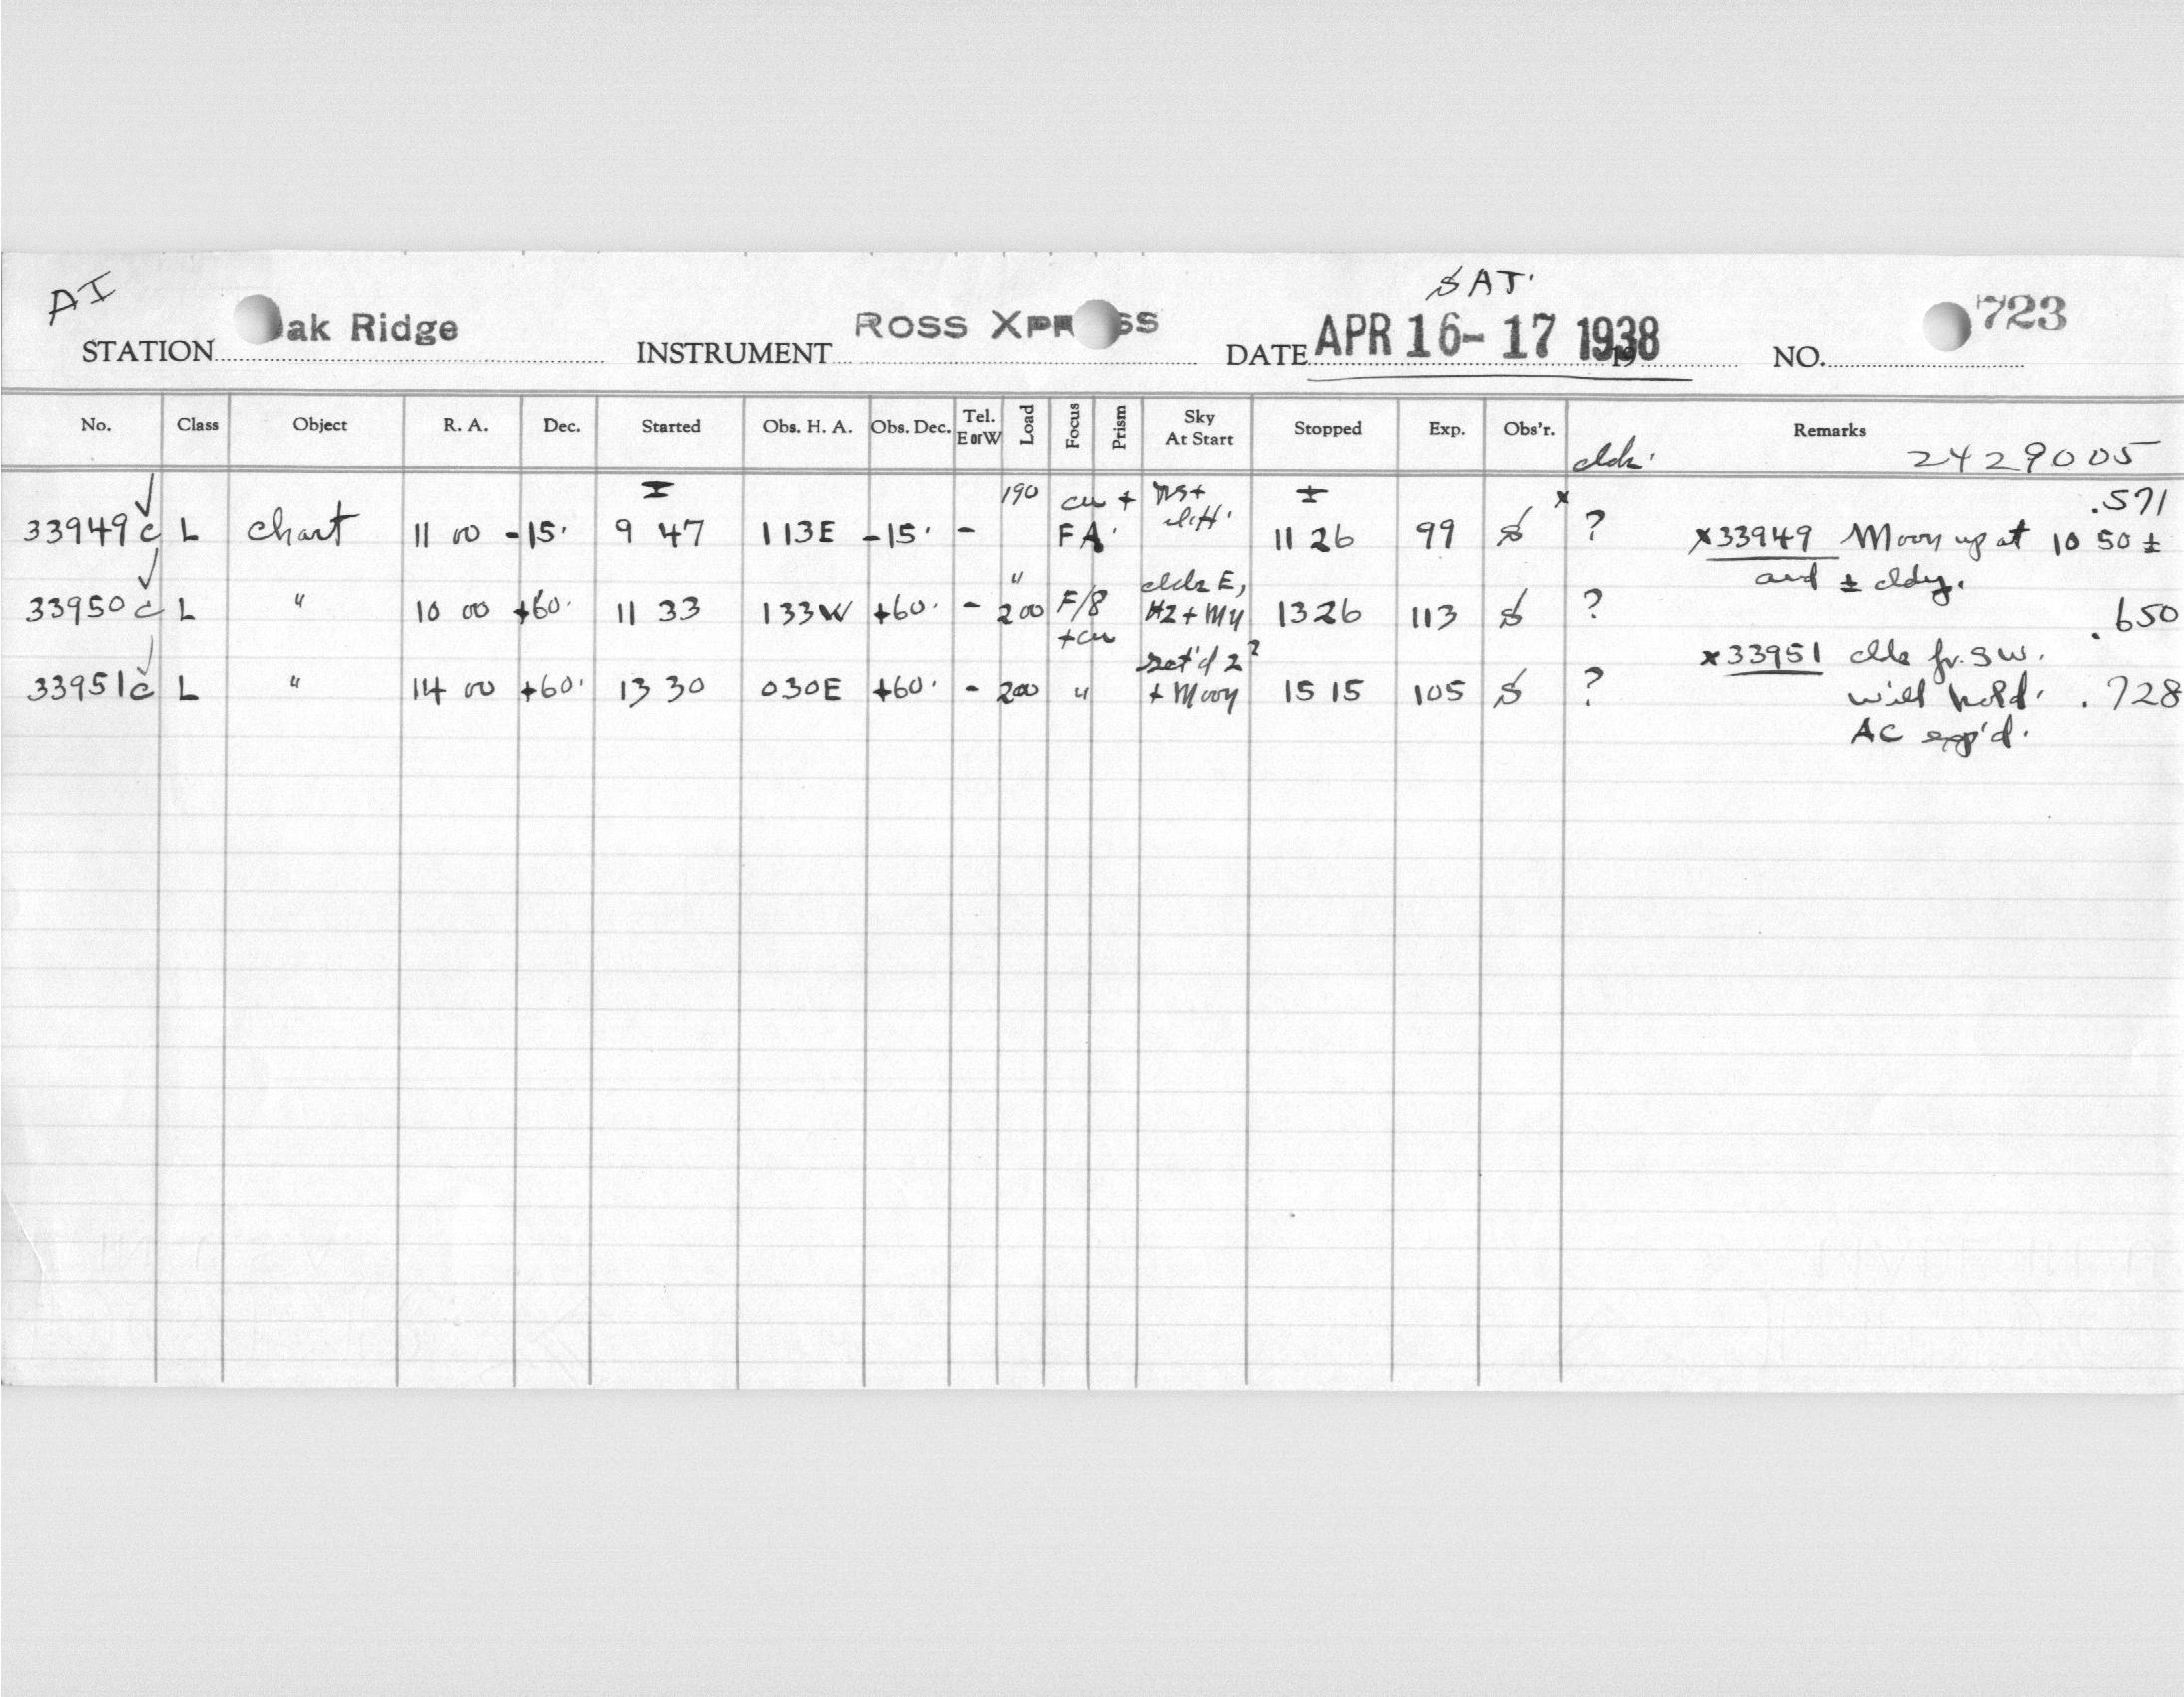 AI
SAT.
STATION ak Ridge INSTRUMENT ROSS XPR SS DATE APR 16-17 1938 NO. 723
No. Class Object R. A. Dec. Started Obs. H. A. Obs. Dec. Tel. E or W Load Focus Prism Sky At Start Stopped Exp. Obs'r. Remarks
2429005
± 190 cu + ± x .571
33949 c L chart 11 00 -15. 9 47 113E -15. - FA. 11 26 99 S ? x33949 Moon up at 10 50 ±
and ± cldy.
33950 c L " 10 00 +60. 11 33 133W +60. - " 200 F/8 +cu HZ + MY 13 26 113 S ? .650
x33951 fr. SW.
33951 c L " 14 00 +60. 13 30 030E +60. - 200 " + Moon 15 15 105 S ? will hold. .728
AC exp'd.